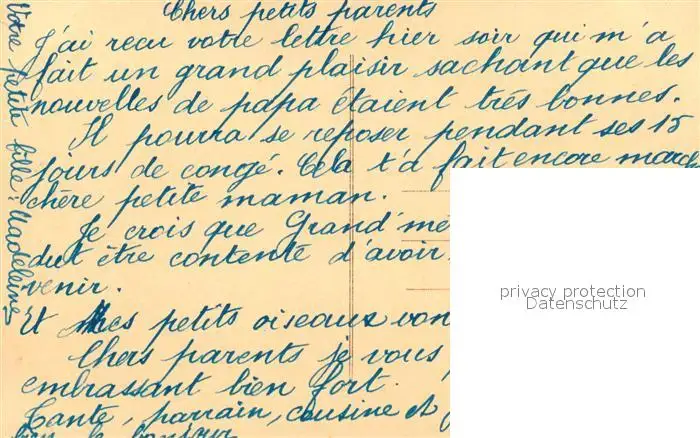 Chers petits parents
J'ai recu votre lettre hier soir qui m'a
fait un grand plaisir sachant que les
nouvelles de papa étaient très bonnes.
Il pourra se reposer pendant ses 15
jours de congé. Cela t'a fait encore march
chère petite maman.
Je crois que Grand'mè
dut être contente d'avoir
venir.
Et Mes petits oiseaux von
Chers parents je vous
embrassant bien fort.
Tante, parrain, cousine et
bien le bonjour
Votre petite fille: Madeleine
privacy protection
Datenschutz